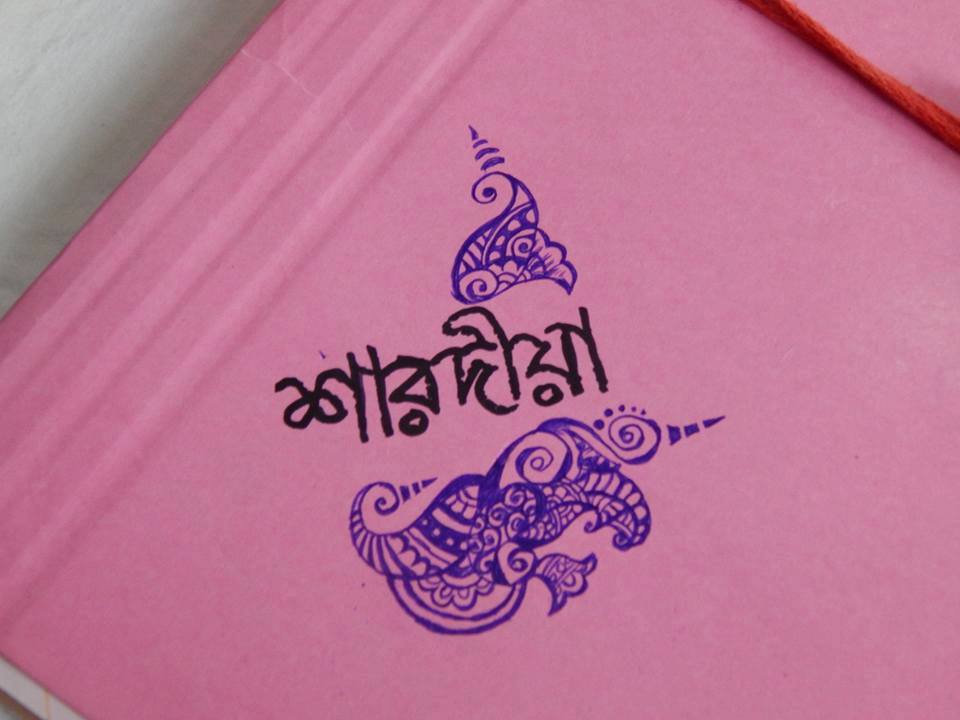 শারদীয়া